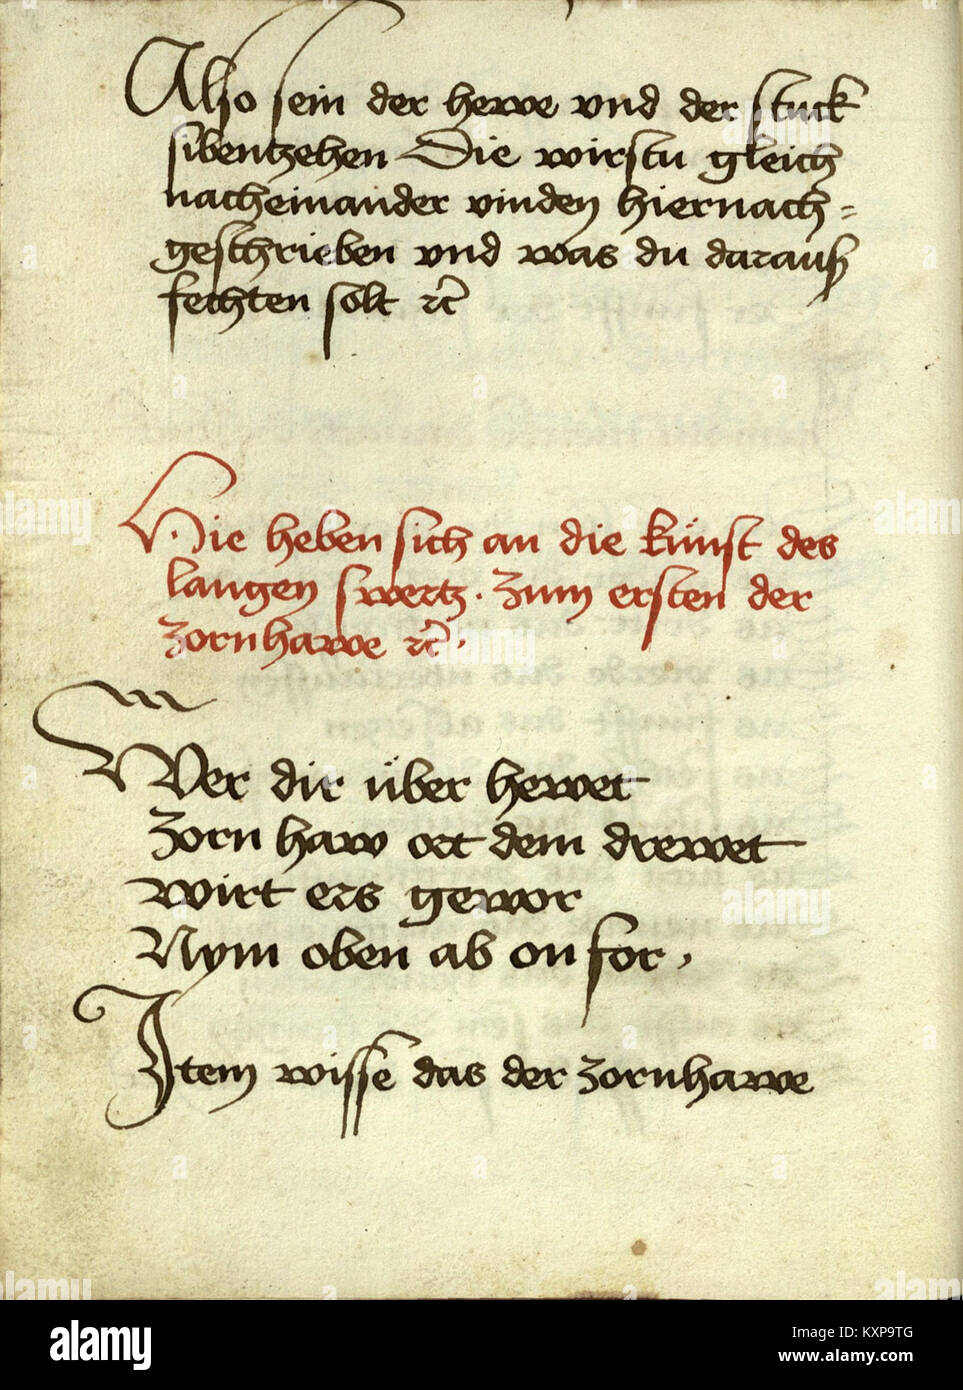 Also sein der hewe vnd der stuck
sibentzehen Die wirstu gleich
nacheinander vinden hiernach=
geschrieben vnd was du darauß
fechten solt ꝛc̃
Hie heben sich an die kúnst des
langen swertz · Zum ersten der
Zornhawe ꝛc̃ ·
Wer dir úber hewet
Zorn haw ort dem drewet
wirt ers gewor
Nym oben ab on for ,
Item wisse das der zornhawe
alamy
Image ID: KXP9TG
www.alamy.com